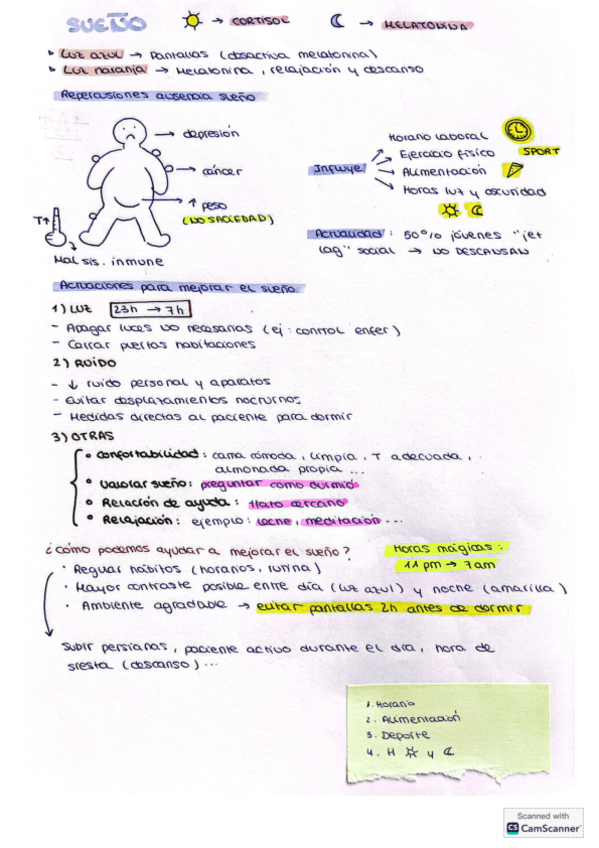 SUEÑO ☀ → CORTISOL ☾ → MELATONINA
LUZ azul → Pantallas (desactiva melatonina)
LUZ naranja → Melatonina, relajación y descanso
Repercusiones ausencia sueño
→ depresión
→ cáncer
→ ↑ peso
(NO SACIEDAD)
T↑
Mal sis. inmune
Influye
Horario laboral
Ejercicio físico SPORT
Alimentación
Horas luz y oscuridad
Actualidad: 50% jóvenes "jet
lag" social → NO DESCANSAN
Actuaciones para mejorar el sueño
1) LUZ 23h → 7h
- Apagar luces NO necesarias (ej: control enfer)
- Cerrar puertas habitaciones
2) RUIDO
- ↓ ruido personal y aparatos
- Evitar desplazamientos nocturnos
- Medidas directas al paciente para dormir
3) OTRAS
• Confortabilidad: cama cómoda, limpia, T adecuada,
almohada propia ...
• Valorar sueño: preguntar como durmió
• Relación de ayuda: trato cercano
• Relajación: ejemplo: leche, meditación ...
¿cómo podemos ayudar a mejorar el sueño?
Horas mágicas:
11 pm → 7 am
· Regular hábitos (horarios, rutina)
· Mayor contraste posible entre día (luz azul) y noche (amarilla)
· Ambiente agradable → evitar pantallas 2h antes de dormir
Subir persianas, paciente activo durante el día, hora de
siesta (descanso) ...
1. Horario
2. Alimentación
3. Deporte
4. H ☀ y ☾
Scanned with
CS CamScanner